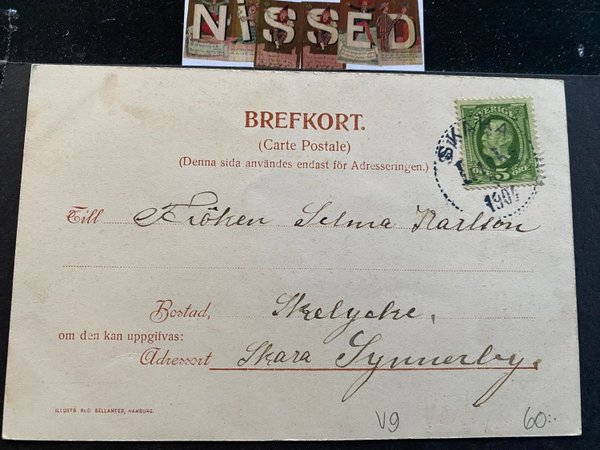 NISSED
BREFKORT.
(Carte Postale)
(Denna sida användes endast för Adresseringen.)
SVERIGE
5 ÖRE
SKARA
1904
Till Fröken Selma Karlson
Bostad, Skelycke.
om den kan uppgifvas:
Adressort Skara Synnerby.
ILLUSTR. BELLANDER, HAMBURG.
V9
60:-